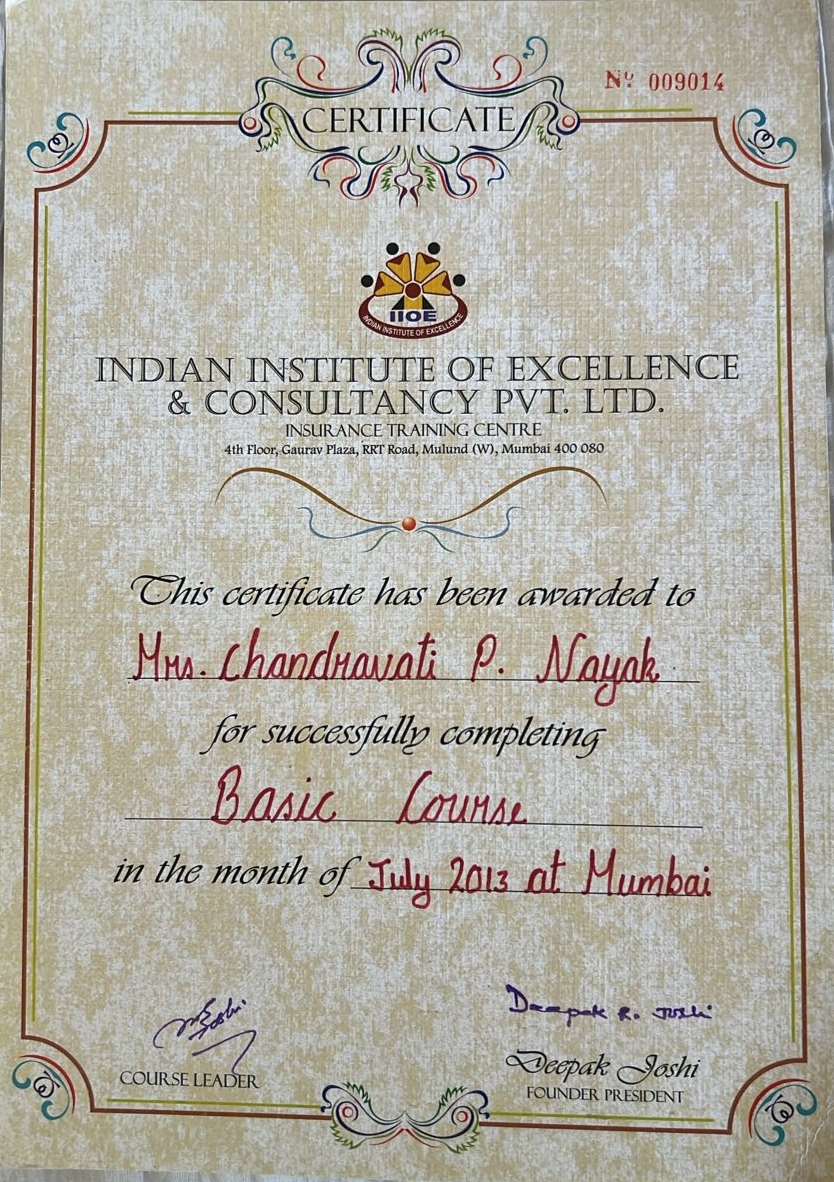 Nº 009014
CERTIFICATE
IIOE
INDIAN INSTITUTE OF EXCELLENCE
INDIAN INSTITUTE OF EXCELLENCE
& CONSULTANCY PVT. LTD.
INSURANCE TRAINING CENTRE
4th Floor, Gaurav Plaza, RRT Road, Mulund (W), Mumbai 400 080
This certificate has been awarded to
Mrs. Chandravati P. Nayak
for successfully completing
Basic Course
in the month of July 2013 at Mumbai
Deepak R. Joshi
COURSE LEADER
Deepak Joshi
FOUNDER PRESIDENT